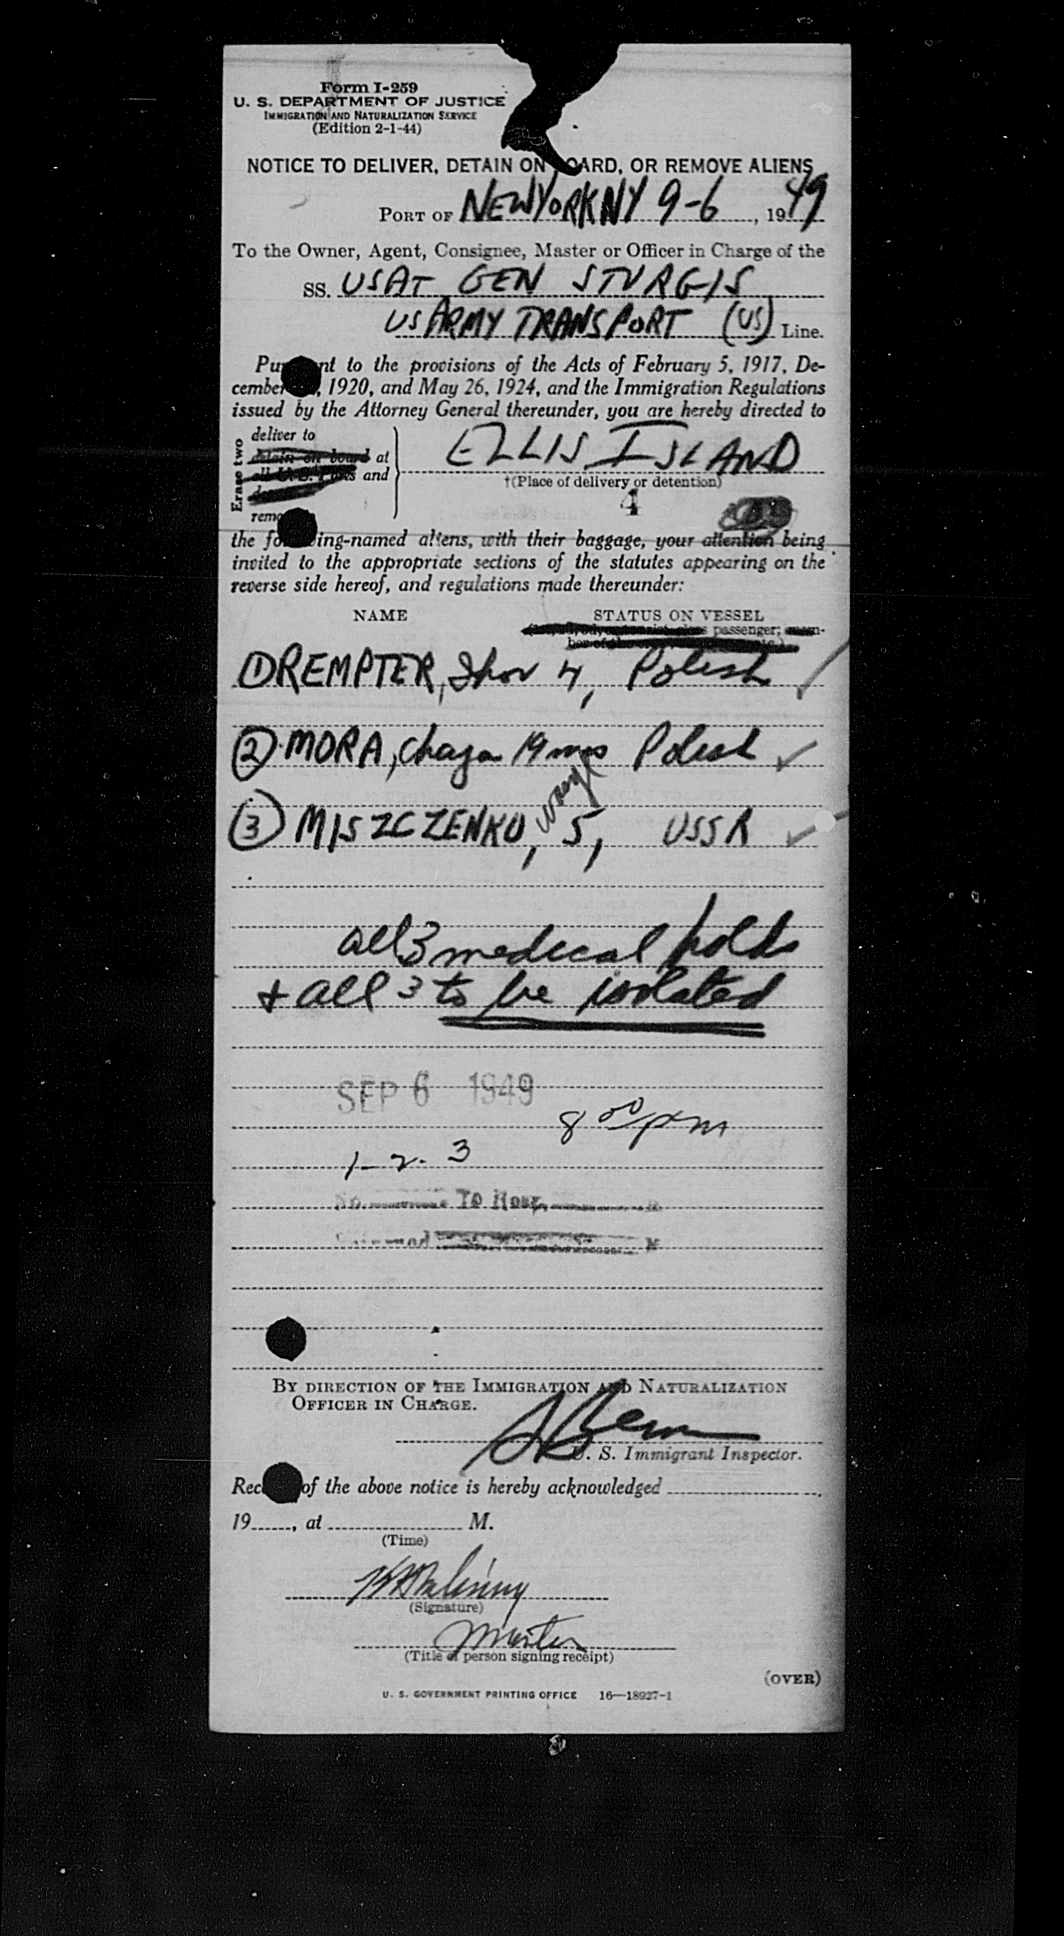 Form I-259
U. S. DEPARTMENT OF JUSTICE
IMMIGRATION AND NATURALIZATION SERVICE
(Edition 2-1-44)
NOTICE TO DELIVER, DETAIN ON OARD, OR REMOVE ALIENS
PORT OF NEW YORK NY 9-6, 1949
To the Owner, Agent, Consignee, Master or Officer in Charge of the
SS. USAT GEN STURGIS
US ARMY TRANSPORT (US) Line.
Pu nt to the provisions of the Acts of February 5, 1917, De-
cember , 1920, and May 26, 1924, and the Immigration Regulations
issued by the Attorney General thereunder, you are hereby directed to
Erase two
deliver to
detain on board at
and
remo
ELLIS ISLAND
†(Place of delivery or detention)
4
the fo ing-named aliens, with their baggage, your attention being
invited to the appropriate sections of the statutes appearing on the
reverse side hereof, and regulations made thereunder:
NAME STATUS ON VESSEL
passenger;
① DREMPTER, 4, Polish ✓
② MORA, Chaya 19 mos Polish ✓
③ MISZCZENKO, 5, USSR ✓
all 3 medical holds
+ all 3 to be isolated
SEP 6 1949
8 00 pm
1-2-3
No. To Hosp. M
M
BY DIRECTION OF THE IMMIGRATION AND NATURALIZATION
OFFICER IN CHARGE.
U. S. Immigrant Inspector.
Rec of the above notice is hereby acknowledged
19 , at M.
(Time)
(Signature)
Master
(Title of person signing receipt)
(OVER)
U. S. GOVERNMENT PRINTING OFFICE 16—18927-1